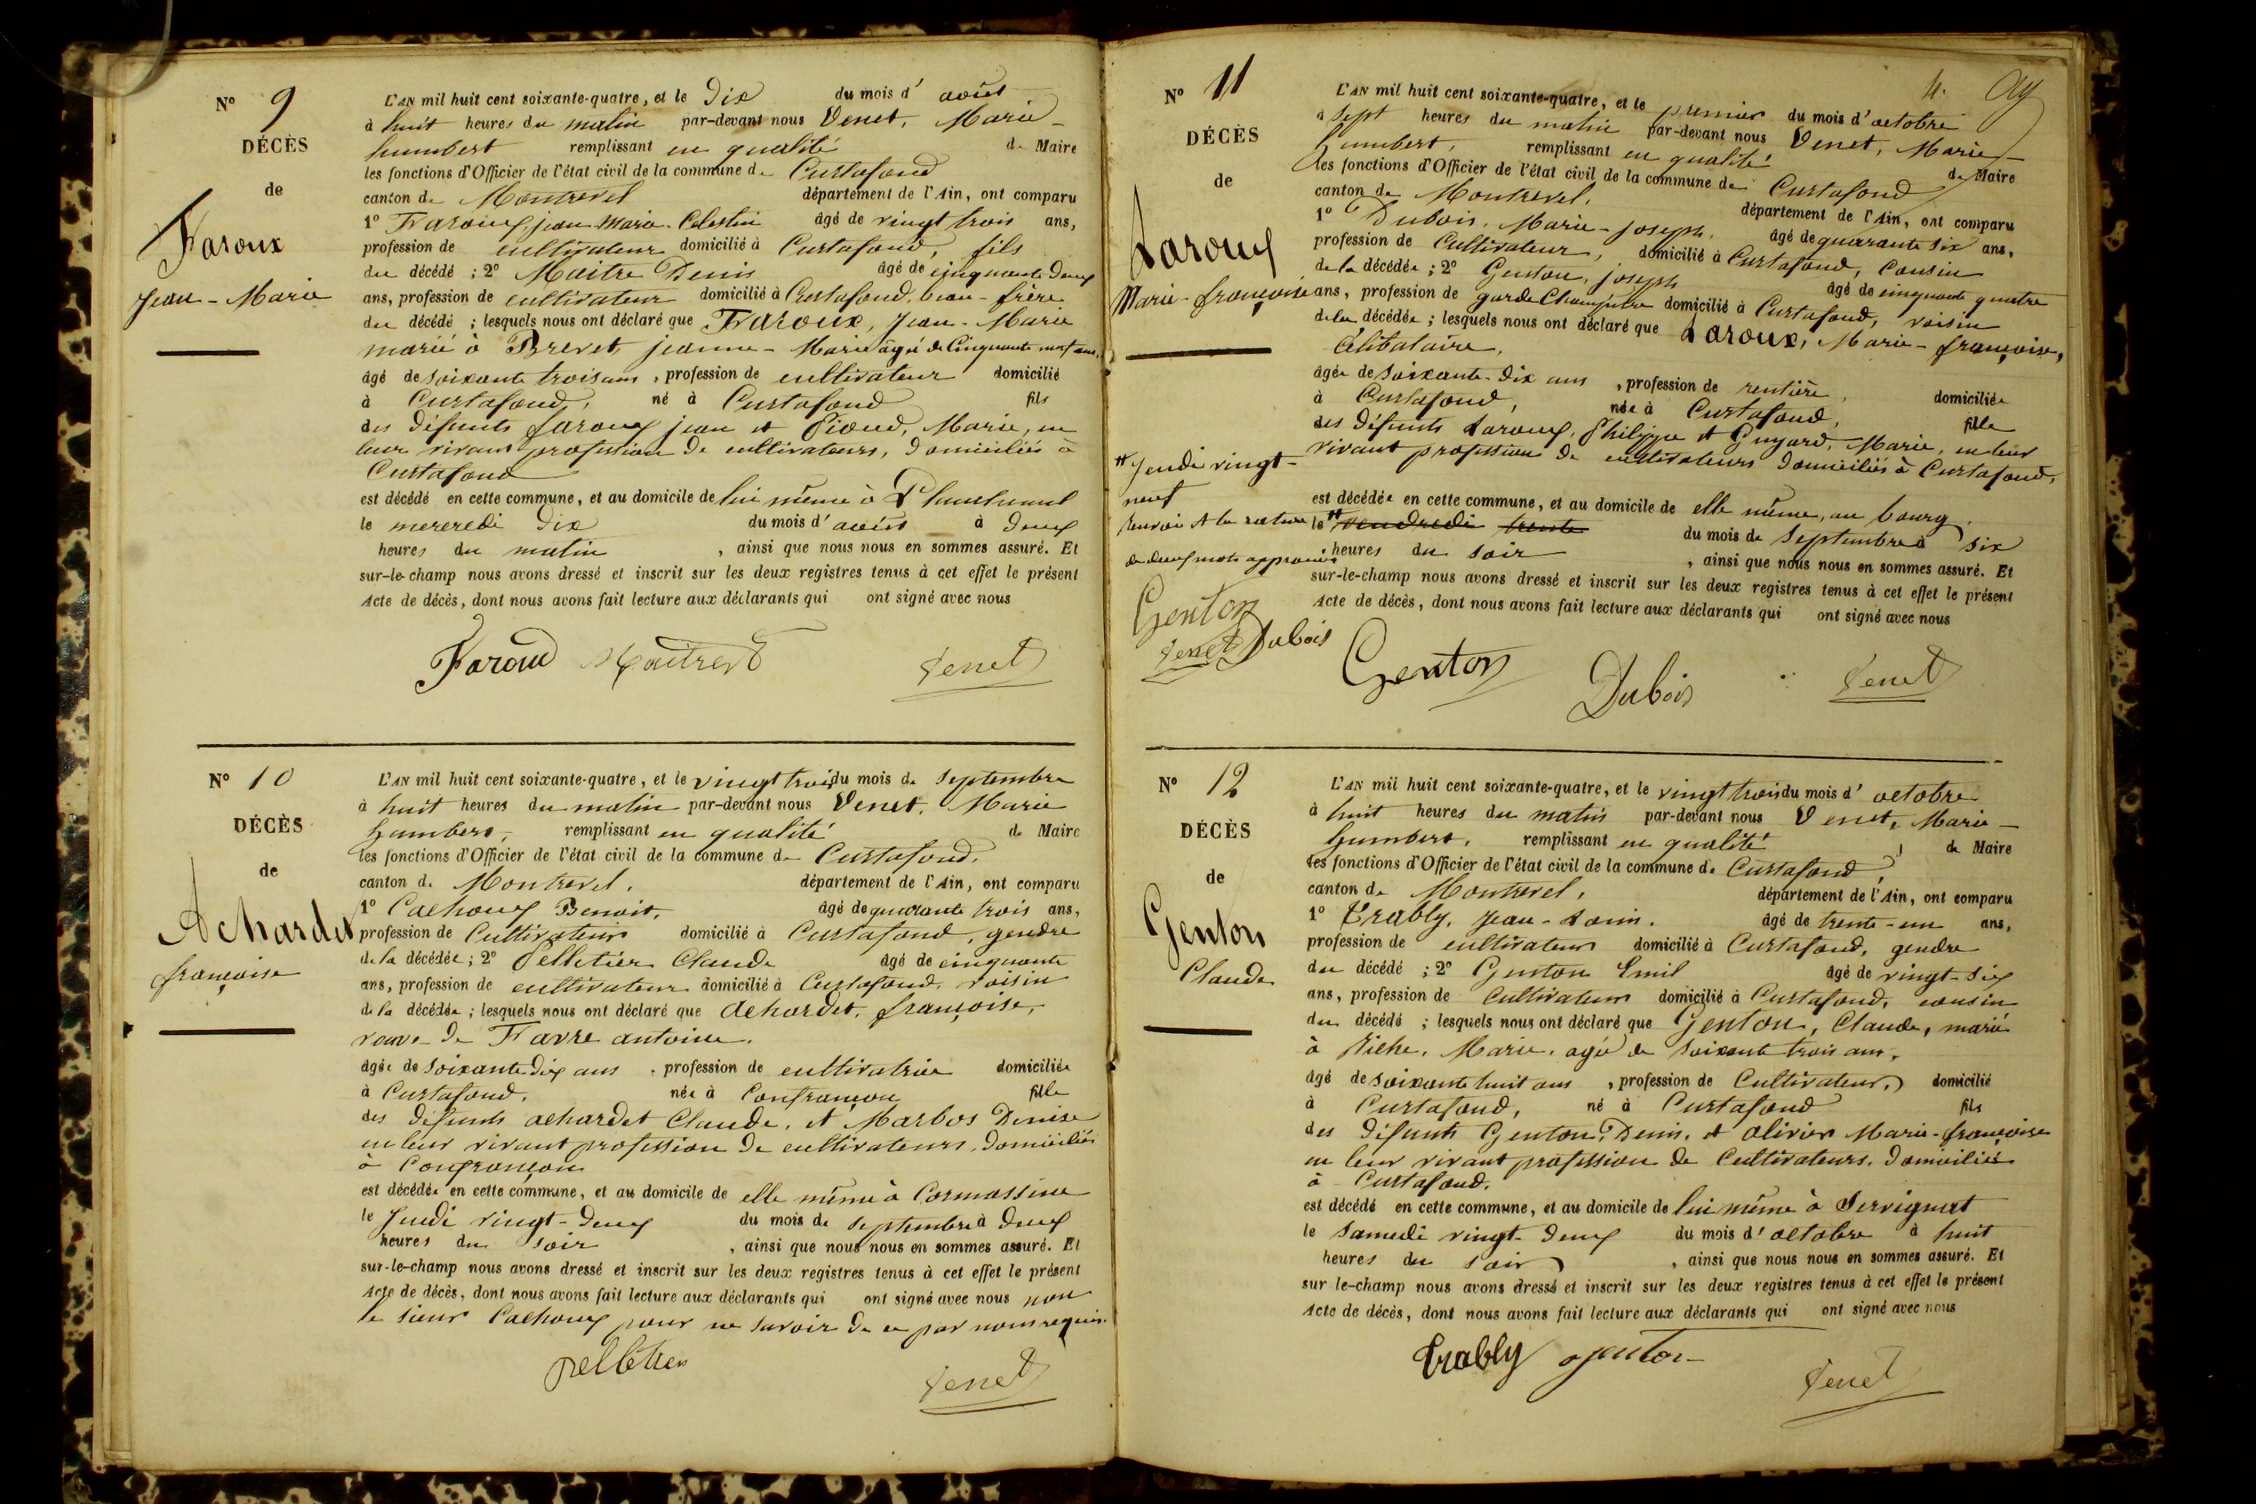 N° 9
DÉCÈS
de
Faroux
Jean-Marie
L'AN mil huit cent soixante-quatre, et le Dix du mois d'août
à huit heures du matin par-devant nous Venet, Marie-
humbert remplissant en qualité de Maire
les fonctions d'Officier de l'état civil de la commune de Curtafond
canton de Montrevel département de l'Ain, ont comparu
1° Faroux, jean Marie Celestin âgé de vingt trois ans,
profession de cultivateur domicilié à Curtafond, fils
du décédé ; 2° Maitre Denis âgé de cinquante Deux
ans, profession de cultivateur domicilié à Curtafond, beau-frère
du décédé ; lesquels nous ont déclaré que Faroux, Jean-Marie
marié à Brevet, jeanne-Marie âgée de Cinquante neuf ans,
âgé de soixante trois ans, profession de cultivateur domicilié
à Curtafond, né à Curtafond fils
des Défunts faroux jean et Pioud, Marie, en
leur vivant profession de cultivateurs, Domiciliés à
Curtafond
est décédé en cette commune, et au domicile de lui même à
le mercredi Dix du mois d'août à Deux
heures du matin, ainsi que nous nous en sommes assuré. Et
sur-le-champ nous avons dressé et inscrit sur les deux registres tenus à cet effet le présent
Acte de décès, dont nous avons fait lecture aux déclarants qui ont signé avec nous
Faroud Maitre D Venet
N° 10
DÉCÈS
de
Achardet
françoise
L'AN mil huit cent soixante-quatre, et le vingt trois du mois de Septembre
à huit heures du matin par-devant nous Venet, Marie
humbert, remplissant en qualité de Maire
les fonctions d'Officier de l'état civil de la commune de Curtafond,
canton de Montrevel, département de l'Ain, ont comparu
1° Cachoux Benoit, âgé de quarante trois ans,
profession de Cultivateur domicilié à Curtafond, gendre
de la décédée ; 2° Pelletier Claude âgé de cinquante
ans, profession de cultivateur domicilié à Curtafond, voisin
de la décédée ; lesquels nous ont déclaré que Achardet, françoise,
veuve de Favre antoine,
âgée de Soixante Dix ans, profession de cultivatrice domiciliée
à Curtafond, née à Confrançon fille
des Défunts achardet Claude, et Marbos Denise
en leur vivant profession De cultivateurs, Domiciliés
à Confrançon
est décédée en cette commune, et au domicile de elle même à Cormassine
le Jeudi vingt-Deux du mois de Septembre à Deux
heures du soir, ainsi que nous nous en sommes assuré. Et
sur-le-champ nous avons dressé et inscrit sur les deux registres tenus à cet effet le présent
Acte de décès, dont nous avons fait lecture aux déclarants qui ont signé avec nous non
le sieur Cachoux pour ne savoir De ce par nous requis.
pelletier Venet
4.
N° 11
DÉCÈS
de
Laroux
Marie-françoise
L'AN mil huit cent soixante-quatre, et le premier du mois d'octobre
à Sept heures du matin par-devant nous Venet, Marie-
humbert, remplissant en qualité de Maire
les fonctions d'Officier de l'état civil de la commune de Curtafond
canton de Montrevel, département de l'Ain, ont comparu
1° Dubois, Marie-joseph, âgé de quarante six ans,
profession de Cultivateur, domicilié à Curtafond, Cousin
de la décédée ; 2° Genton, joseph âgé de cinquante quatre
ans, profession de garde Champêtre domicilié à Curtafond, voisin
de la décédée ; lesquels nous ont déclaré que Laroux, Marie-françoise,
Célibataire,
âgée de Soixante-Dix ans, profession de rentière, domiciliée
à Curtafond, née à Curtafond, fille
des Défunts Laroux, Philippe et Guyard, Marie, en leur
vivant profession De cultivateurs domiciliés à Curtafond,
est décédée en cette commune, et au domicile de elle même, au bourg,
le # vendredi trente du mois de Septembre à six
heures du soir, ainsi que nous nous en sommes assuré. Et
sur-le-champ nous avons dressé et inscrit sur les deux registres tenus à cet effet le présent
Acte de décès, dont nous avons fait lecture aux déclarants qui ont signé avec nous
# Jeudi vingt-
neuf
renvoi et la rature
de deux mots approuvés
Genton
Venet Dubois
Genton Dubois Venet
N° 12
DÉCÈS
de
Genton
Claude
L'AN mil huit cent soixante-quatre, et le vingt trois du mois d'octobre
à huit heures du matin par-devant nous Venet, Marie-
humbert, remplissant en qualité de Maire
les fonctions d'Officier de l'état civil de la commune de Curtafond,
canton de Montrevel, département de l'Ain, ont comparu
1° Trably, Jean-Louis, âgé de trente-un ans,
profession de cultivateur domicilié à Curtafond, gendre
du décédé ; 2° Genton Emil âgé de vingt-six
ans, profession de Cultivateur domicilié à Curtafond, cousin
du décédé ; lesquels nous ont déclaré que Genton, Claude, marié
à Riche, Marie, agée de Soixante trois ans,
âgé de soixante huit ans, profession de Cultivateur, domicilié
à Curtafond, né à Curtafond fils
des Défunts Genton, Denis, et Olivier Marie-françoise
en leur vivant profession de Cultivateurs, Domiciliés
à Curtafond.
est décédé en cette commune, et au domicile de lui même à Servignat
le Samedi vingt-Deux du mois d'octobre à huit
heures du soir, ainsi que nous nous en sommes assuré. Et
sur le-champ nous avons dressé et inscrit sur les deux registres tenus à cet effet le présent
Acte de décès, dont nous avons fait lecture aux déclarants qui ont signé avec nous
trably genton Venet